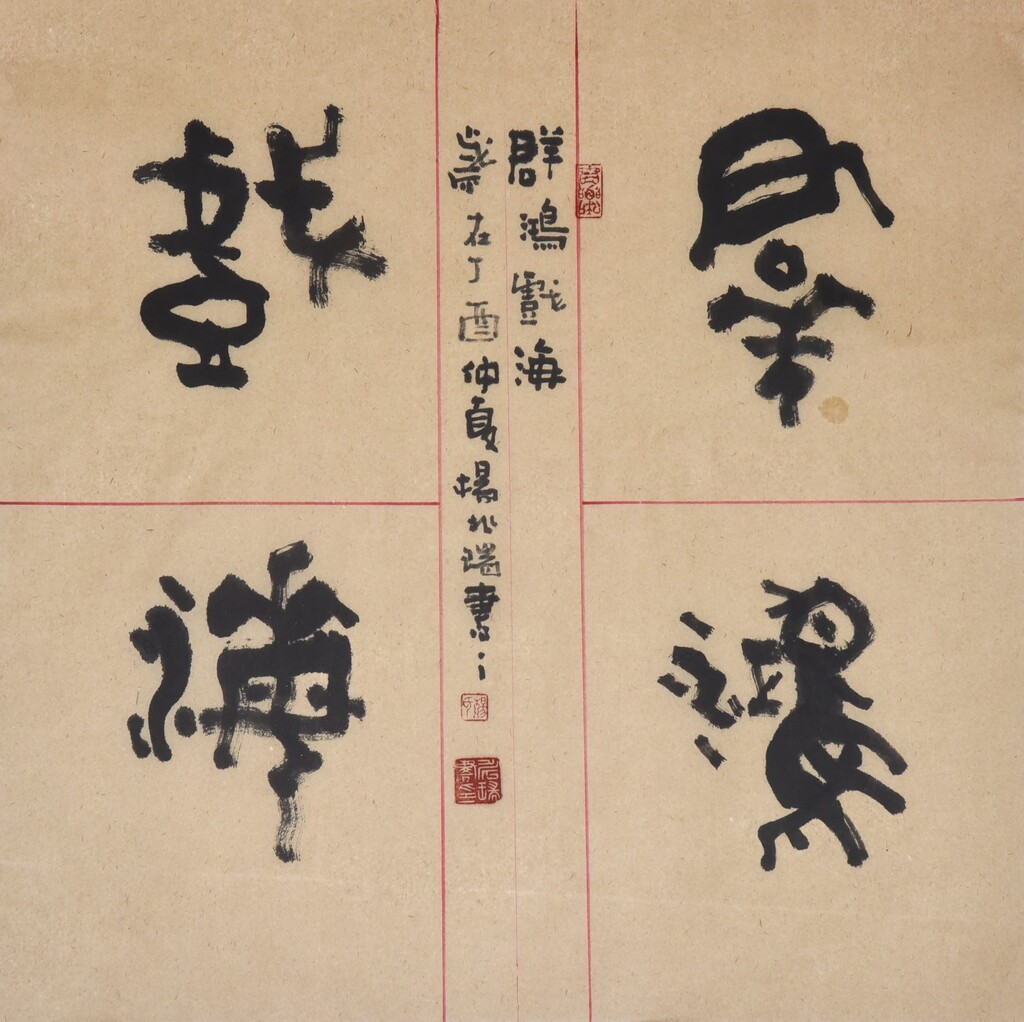 羣鴻
戲海
群鴻戲海
歲在丁酉仲夏楊兆瑞書